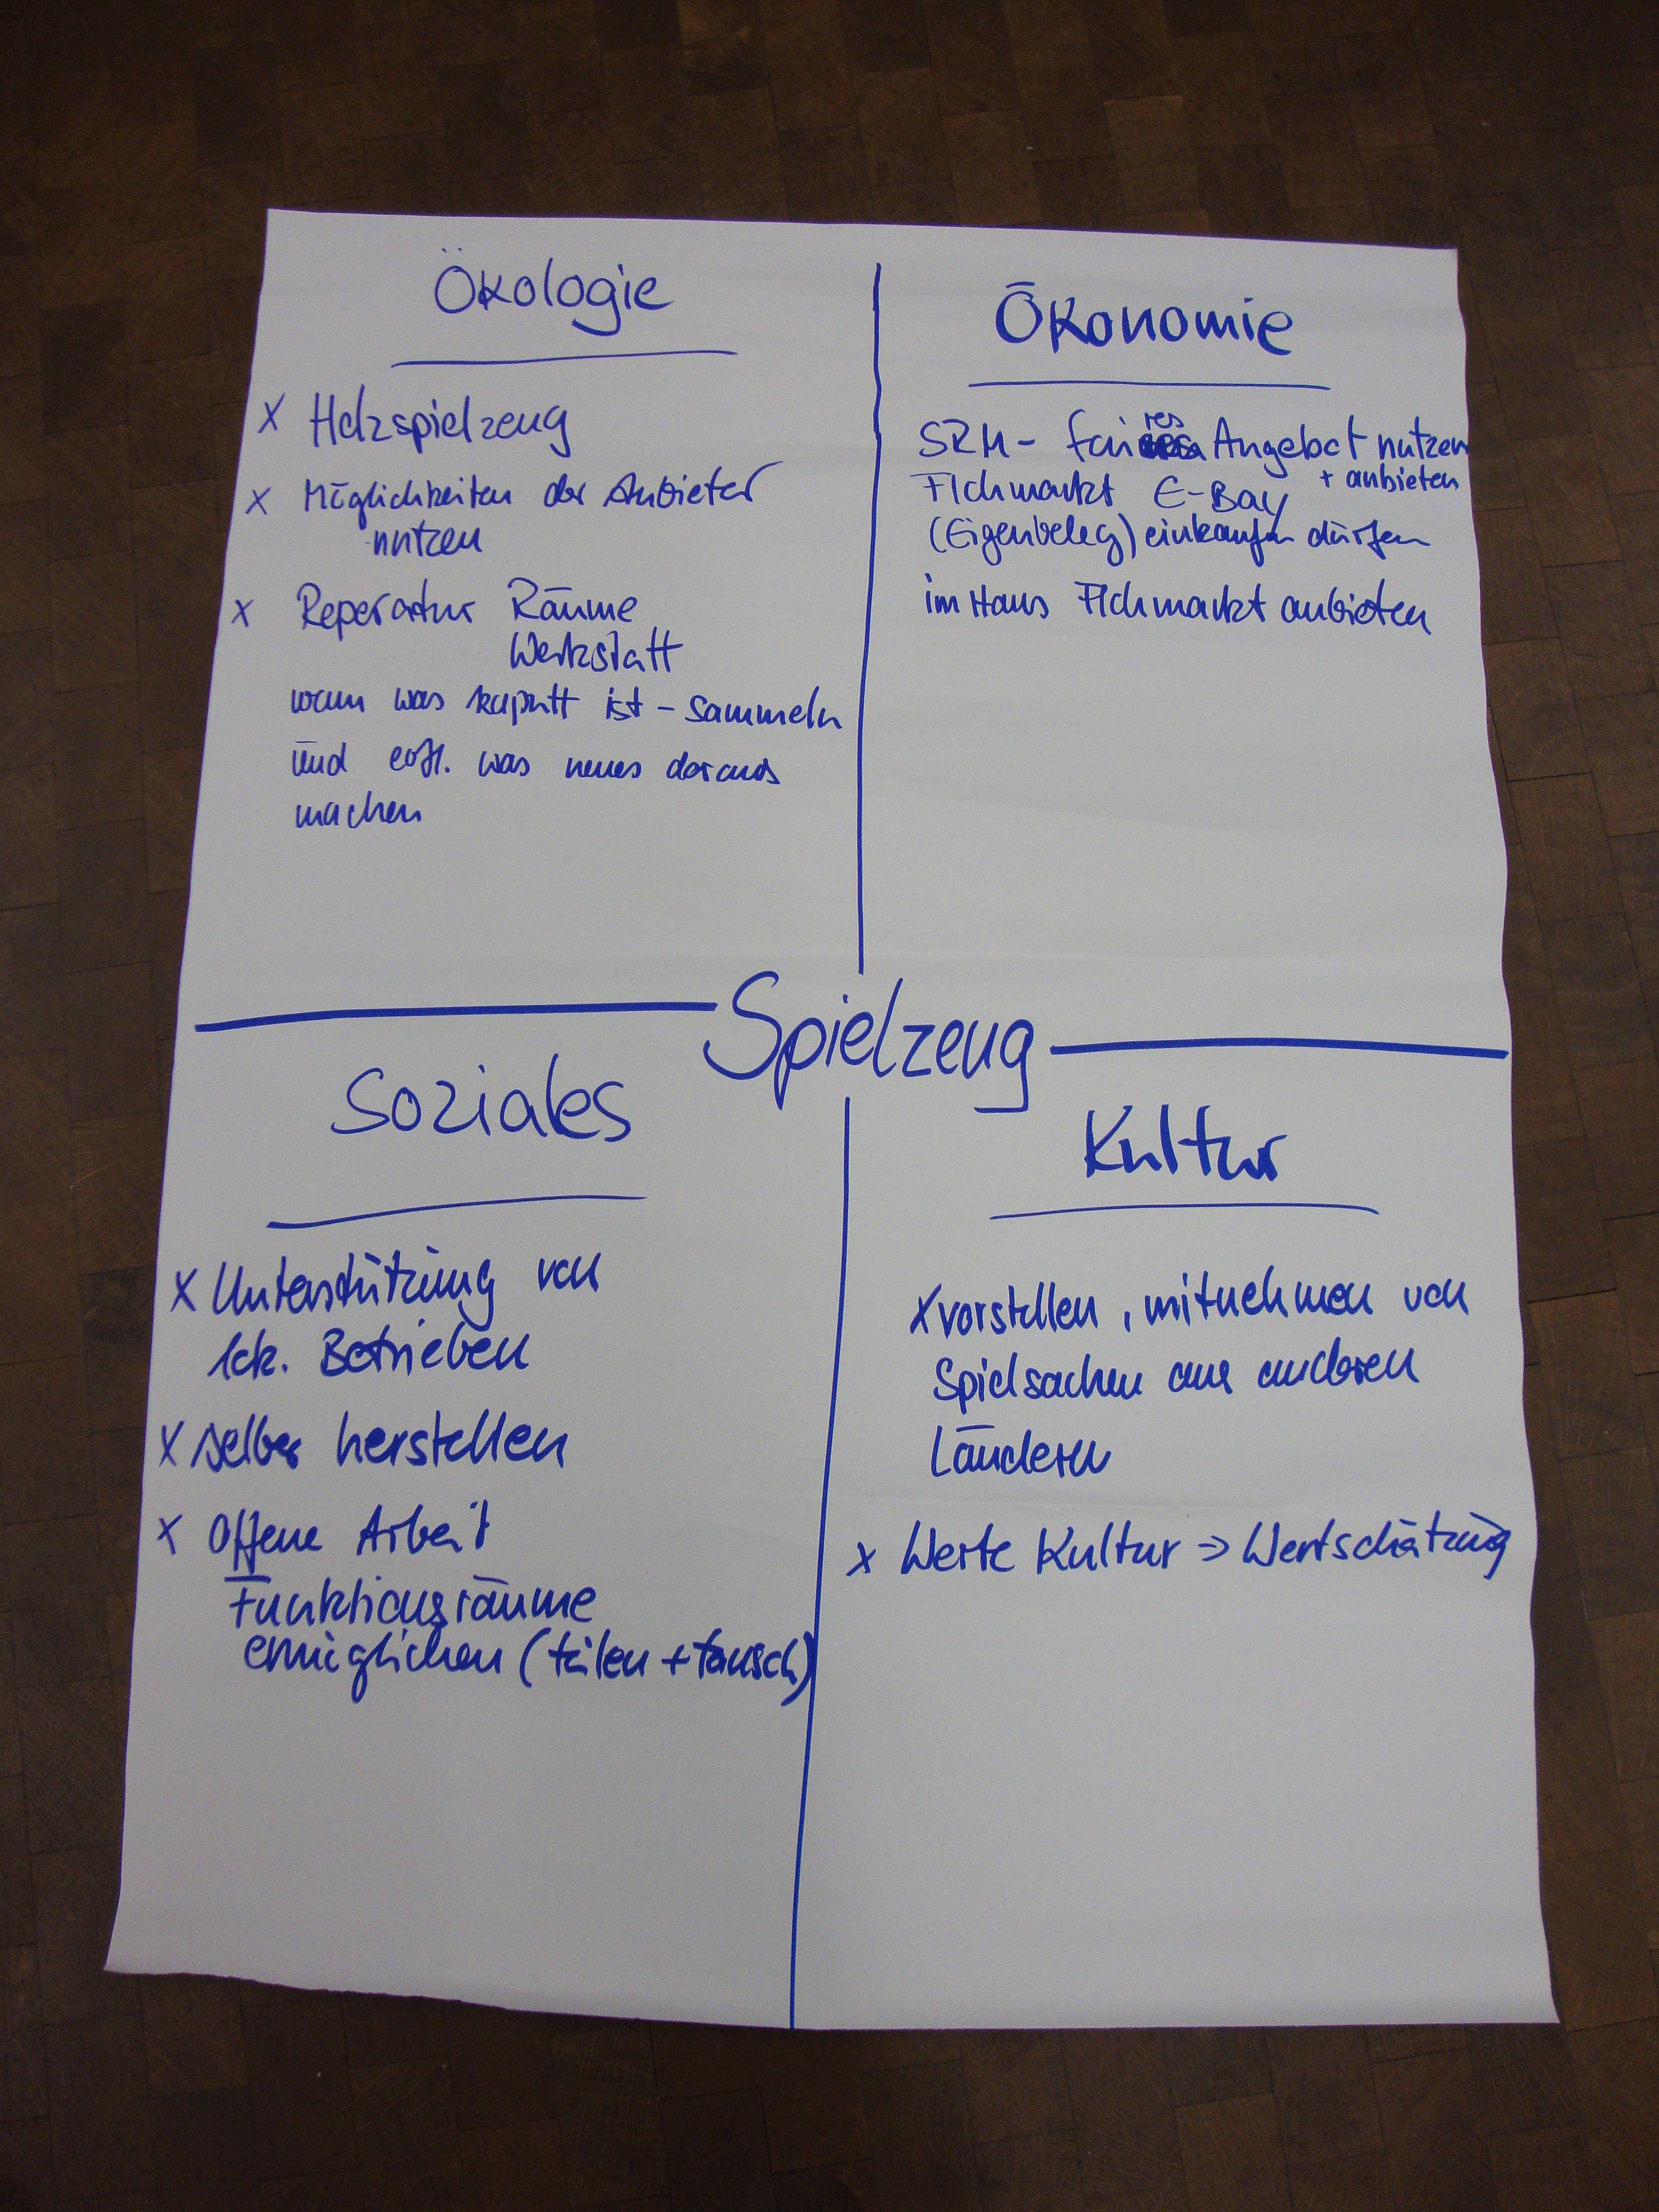 Ökologie
x Holzspielzeug
x Möglichkeiten der Anbieter
nutzen
x Reperatur Räume
Werkstatt
wenn was kaputt ist - sammeln
und evtl. was neues daraus
machen
Ökonomie
SRM - faires Angebot nutzen
+ anbieten
Flohmarkt E-Bay
(Eigenbeleg) einkaufen dürfen
im Haus Flohmarkt anbieten
Spielzeug
Soziales
x Unterstützung von
lok. Betrieben
x selber herstellen
x Offene Arbeit
Funktionsräume
ermöglichen (teilen + tausch)
Kultur
x vorstellen, mitnehmen von
Spielsachen aus anderen
Ländern
x Werte Kultur → Wertschätzung